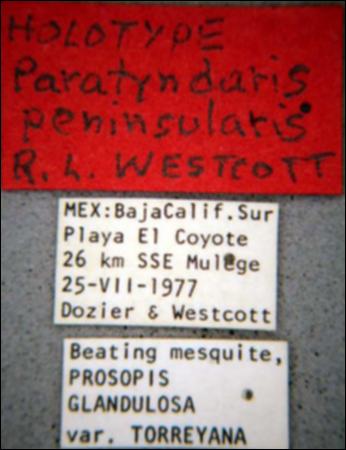 HOLOTYPE
Paratyndaris
peninsularis
R. L. WESTCOTT
MEX:BajaCalif.Sur
Playa El Coyote
26 km SSE Mulege
25-VII-1977
Dozier & Westcott
Beating mesquite,
PROSOPIS
GLANDULOSA
var. TORREYANA